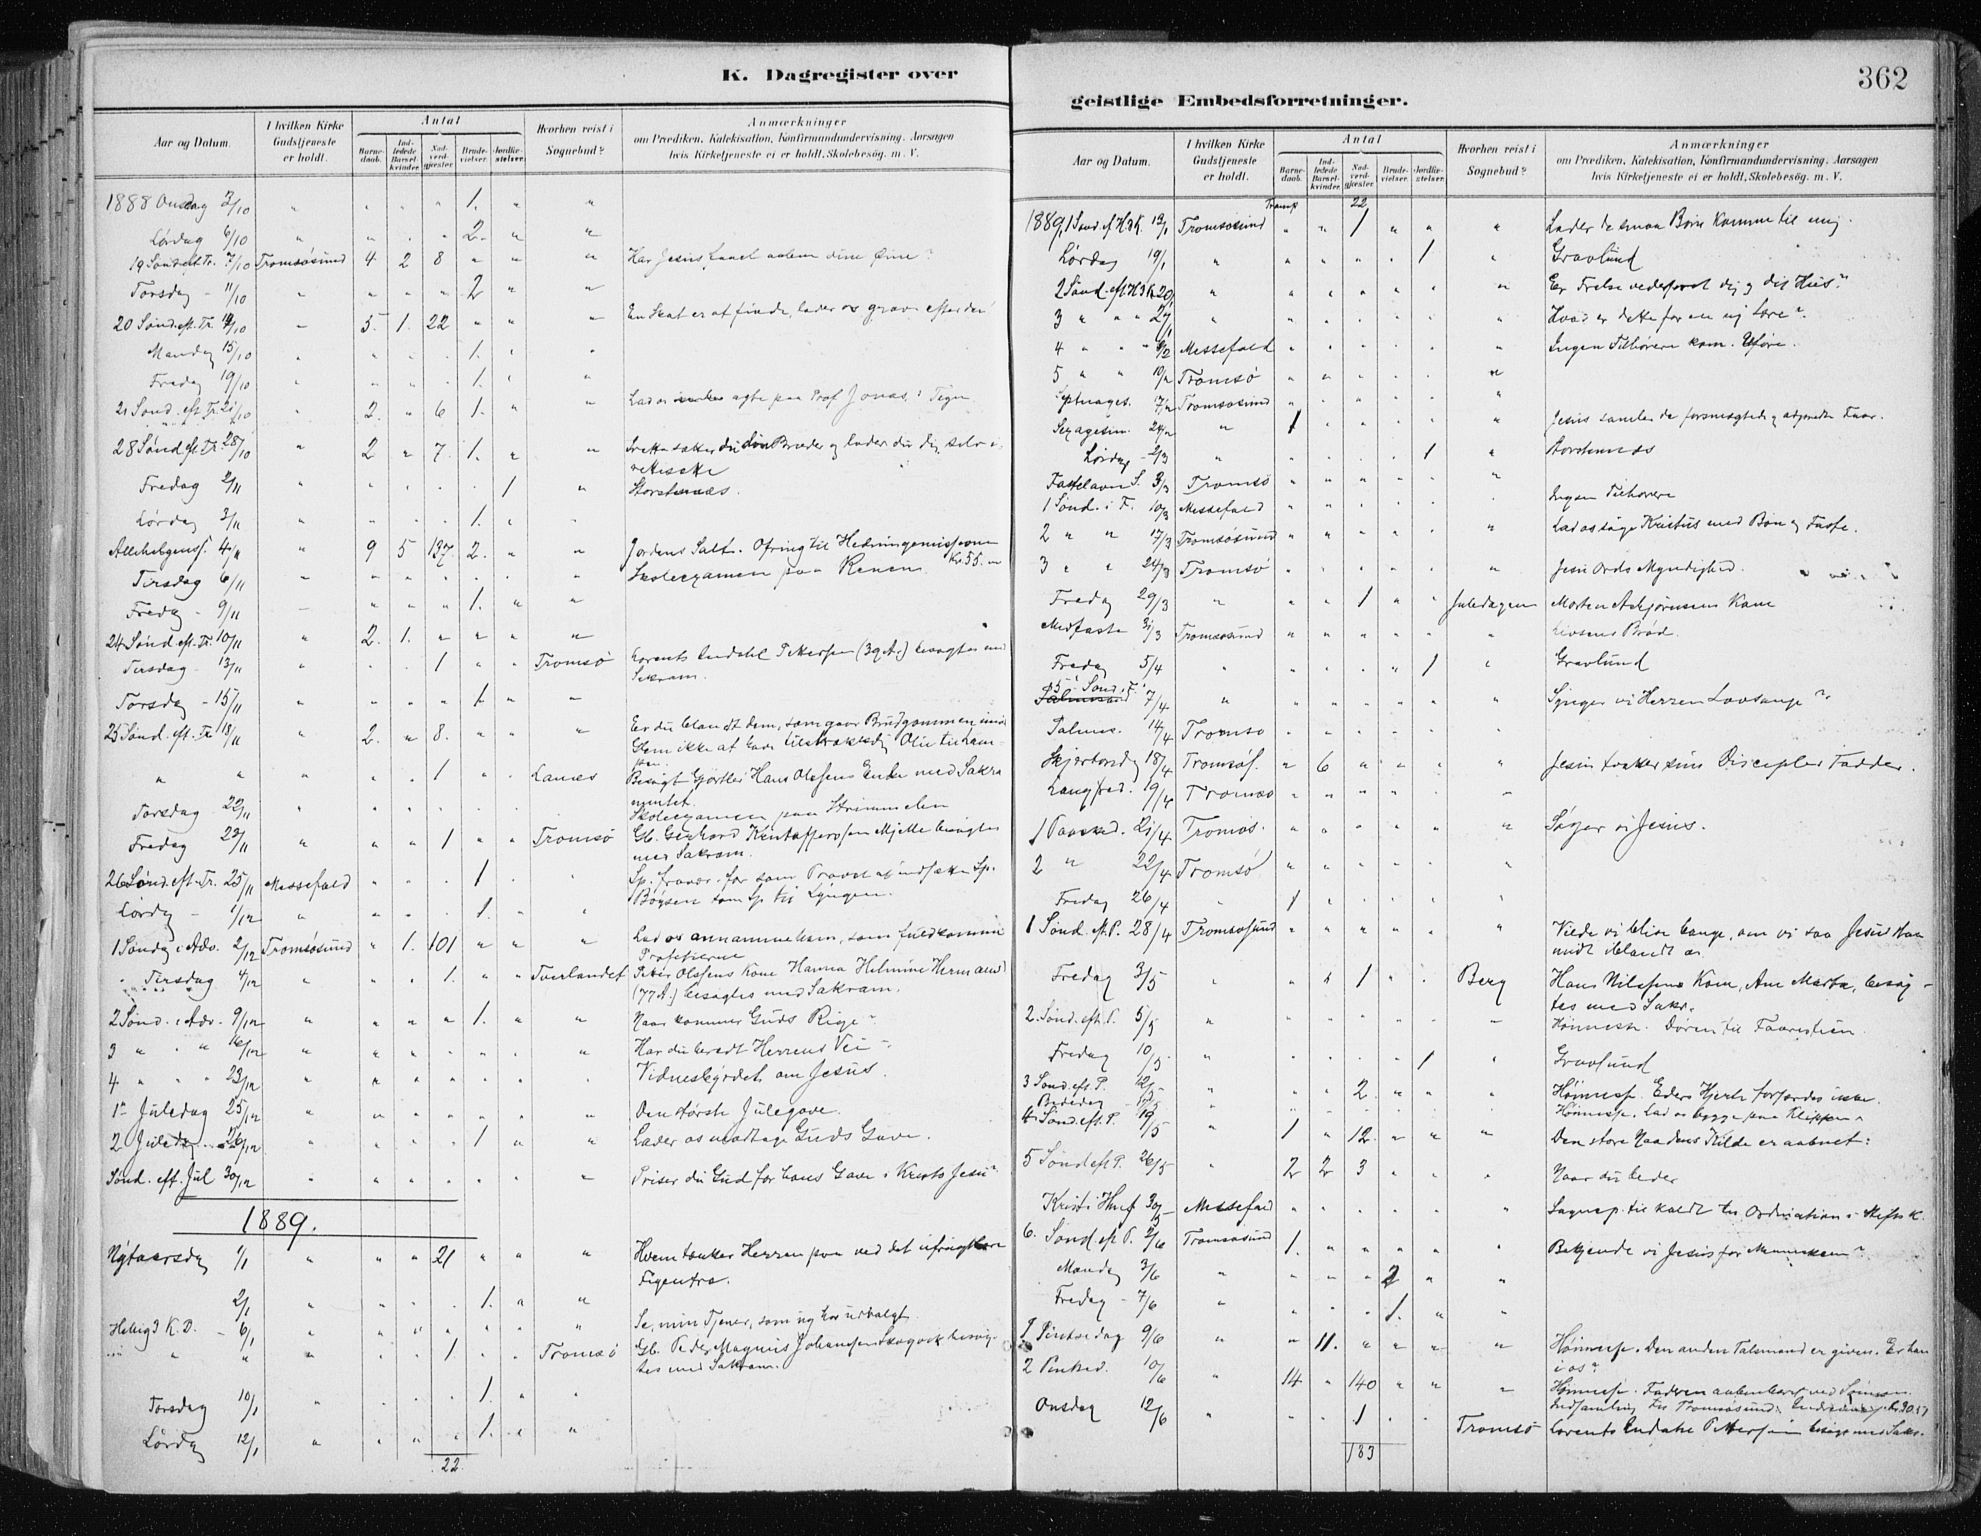 K. Dagregister over
Aar og Datum.
I hvilken Kirke Gudstjeneste er holdt.
Antal
Barne-daab.
Ind-ledede Barsel-kvinder.
Nad-verd-gjæster.
Brude-vielser.
Jordfæ-stelser.
Hvorhen reist i Sognebud?
Anmærkninger
om Prædiken, Katekisation, Konfirmandundervisning. Aarsagen
hvis Kirketjeneste ei er holdt, Skolebesøg. m. V.
1888 Onsdag 3/10 " " " " 1. " "
Lørdag 6/10 " " " " 2. " "
19 Sønd. eft. Tr. 7/10 Tromsøsund 4 2 8 " " " Har Jesus faaet aabne dine Øine?
Torsdag - 11/10 " " " " 2 " "
20 Sønd. eft. Tr. 14/10 " 5. 1. 22 " " " En Skat er at finde, lader os grave efter den
Mandag 15/10 " " " " 1. " "
Fredag 19/10 " " " " 1. " "
21 Sønd. eft. Tr. 21/10 " 2. " 6 1. " " Lad os agte paa Prof. Jonas's Tegn
28 Sønd. eft. Tr. 28/10 " 2 " 7. 1. " " du din Broder og lader du dig selv i-
rettesætte
Fredag 2/11 " " " " " 1 " Storstennæs.
Lørdag 3/11 " " " " 1. " "
Allehelgensf. 4/11 " 9 5 137 2. " " Jordens Salt. Ofring til Hedningemissionen
Kr. 55.
Tirsdag 6/11 " " " " " " " Skoleexamen paa Renen
Fredag - 9/11 " " " " 1. " "
24 Sønd. eft. Tr. 10/11 " 2. 1. " " " "
Tirsdag - 13/11 " " " 1 " " Tromsø Lorents Endahl Pettersen (39 A.) besøgtes med
Sakram.
Torsdag - 15/11 " " " " 1. " "
25 Sønd. eft. Tr 18/11 " 2. " 8. " " " Er du blandt dem, som gaar Brudgommen imøde
Glem ikke at have tilstrækkelig Olie til Lam-
pen.
" " " " " 1 " " Lanæs Besøgt Hans Olsens Enke med Sakra
mentet.
Torsdag - 22/11 " " " " " " " Skoleexamen paa Strimmelen
Fredag 23/11 " " " 1 " " Tromsø Gb. Gerhard Mjelle besøgtes
med Sakram.
26 Sønd. eft. Tr. 25/11 Messefald " " " 1 " " Sp. fravær. for som Provst at indsætte Sp.
Bøysen som Sp. til Lyngen.
Lørdag - 1/12 " " " " 1. " "
1 Søndag i Adv. 2/12 Tromsøsund " 1. 101 " " " Lad os annamme ham, som fuldkommer
Profetierne
Tirsdag 4/12 " " " 1. " " Tverlandet Peter Olsens Kone Hanna Helmine Hermansd
(77 A.) besøgtes med Sakram.
2 Sønd. i Adv. 9/12 " " " " 1. " " Naar kommer Guds Rige?
3 " " " 16/12 " " " " " " " Har du beredt Herrens Vei?
4 " " " 23/12 " " " " " " " Vidnesbyrdet om Jesus.
1ste Juledag 25/12 " " " " " " " Den største Julegave.
2 Juledag 26/12 " " " " 1 " " Lader os modtage Guds Gave.
Sønd. eft. Jul 30/12 " " " " " " " Priser du Gud for hans Gave i Kristo Jesu?
1889.
Nytaarsdag 1/1 " " " 21 " " " Hvem tænker Herren paa ved det ufrugtbare
Figentræ.
2/1 " " " " 1. " "
Hellig 3 K. D. - 6/1 " " " " " " " Se, min Tjener, som jeg har udvalgt
" " " " " 1 " " Tromsø Gb. Peder Magnus Johansen besøg-
tes med Sakram.
Torsdag 10/1 " " " " 1. " "
Lørdag 12/1 " " " " 1. " "
22
geistlige Embedsforretninger.
362
Aar og Datum.
I hvilken Kirke Gudstjeneste er holdt.
Antal
Barne-daab.
Ind-ledede Barsel-kvinder.
Nad-verd-gjæster.
Brude-vielser.
Jordfæ-stelser.
Hvorhen reist i Sognebud?
Anmærkninger
om Prædiken, Katekisation, Konfirmandundervisning. Aarsagen
hvis Kirketjeneste ei er holdt, Skolebesøg. m. V.
Transp 22
1889, 1 Sønd. ef. H3K. 13/1 Tromsøsund " " 1 " " " Lader de smaa Børn komme til mig.
Lørdag 19/1 " " " " " 1 " Gravlund
2 Sønd. eft. H3K 20/1 " " " " " " " Er Frelse vederfaret dig og dit Hus?
3 " " " 27/1 " " " " " " " Hvad er dette for en ny Lære?
4 " " " 3/2 Messefald " " " " " " Ingen Tilhørere kom. Uføre.
5 " " 10/2 Tromsø " " " " " "
Septuages. 17/2 Tromsøsund " " " " " "
Sexagesim. 24/2 " 1 " " " " " Jesus samler de forsmægtede og adspredte Faar.
Lørdag - 2/3 " " " " " 1 "
Fastelavns S. 3/3 Tromsø " " " " " "
1 Sønd. i F. 10/3 Messefald " " " " " " Ingen Tilhørere
2 " " 17/3 Tromsøsund " " " " " " Lad os søge Kristus med Bøn og Faste.
3 " " 24/3 Tromsø " " " " " " Jesu Ords Myndighed.
Fredag 29/3 " " " 1 " " Juledagen Morten Asbjørnsens Kone
Midfaste 31/3 Tromsøsund " " " " " " Livsens Brød.
Fredag 5/4 " " " " " 1 " Gravlund
5 Sønd. i F. 7/4 " " " " " " " Synger vi Herren Lovsange?
Palmes. 14/4 Tromsø " " " " " "
Skjærtorsdag 18/4 Tromsøs. " 6 " " " " Jesus tvætter sine Disciples Fødder.
Langfred. 19/4 Tromsø " " " " " "
1 Paasked. 21/4 Tromøs. " " " " " " Søger vi Jesus.
2 " 22/4 Tromsø " " " " " "
Fredag 26/4 " 1 " " " " "
1 Sønd. eft. P. 28/4 Tromsøsund " " " " " " Vilde vi blive bange, om vi saa Jesus staa
midt iblandt os.
Fredag 3/5 " " " 1 " " Berg Hans Nilsens Kone, Ane Marta, besøg-
tes med Sakr.
2. Sønd. eft. P. 5/5 " " " " " " " Høimesse. Døren til Faarestien.
Fredag 10/5 " " " " " 1 " Gravlund
3 Sønd. eft. P. 12/5 " " " 2. " " " Høimesse. Eders Hjerte forfærdes ikke.
Bededag 17/5 " " " " " " " Høimesse. Lad os bygge paa Klippen
4 Sønd. eft. P. 19/5 " 1 " 12. " " " Den store Naadens Kilde er aabnet:
5 Sønd. eft. P. 26/5 " 2 2 3 " " " Naar du beder
Kristi Hmf. 30/5 Messefald " " " " " " Sognep. til kaldt til Ordination i Stiftsk.
6. Sønd. eft. P. 2/6 Tromsøsund 1. " " " " " Bekjende vi Jesus for Mennesken?
Mandag 3/6 " " " " 2 " "
Fredag - 7/6 " " " " 1. " "
1 Pintsedag 9/6 " " 11. " " " " Høimesse. Den anden Talsmand er given. Er han
i os?
2 Pintsed. 10/6 " 14 " 140 " " " Høimesse. Faderen aabenbaret ved Sønnen.
Indsamling
Onsdag 12/6 " " " 1 " " Tromsø Lorents Endahl Pettersen besøgt med Sakr.
183